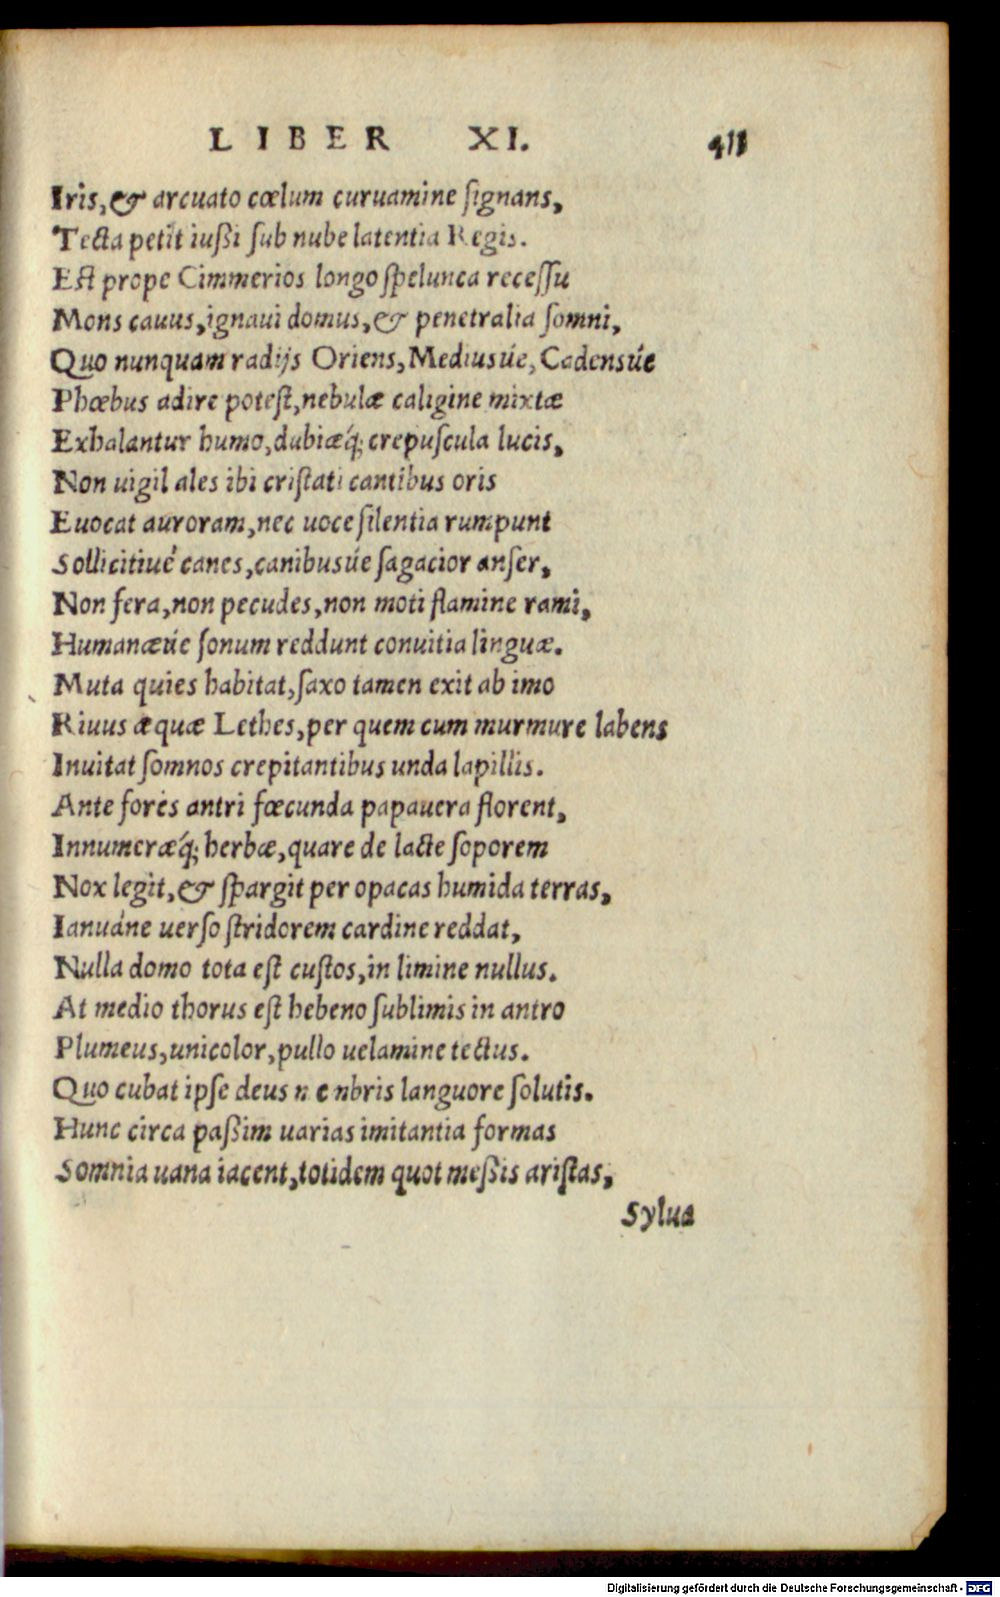 LIBER XI. 411
Iris, & arcuato cœlum curuamine ſignans,
Tecta petit iußi ſub nube latentia Regis.
Eſt prope Cimmerios longo ſpelunca receſſu
Mons cauus, ignaui domus, & penetralia ſomni,
Quo nunquam radijs Oriens, Mediusúe, Cadensúe
Phœbus adire poteſt, nebulæ caligine mixtæ
Exhalantur humo, dubiæq́; crepuſcula lucis,
Non uigil ales ibi criſtati cantibus oris
Euocat auroram, nec uoce ſilentia rumpunt
Sollicitiué canes, canibusúe ſagacior anſer,
Non fera, non pecudes, non moti flamine rami,
Humanæúe ſonum reddunt conuitia linguæ.
Muta quies habitat, ſaxo tamen exit ab imo
Riuus æquæ Lethes, per quem cum murmure labens
Inuitat ſomnos crepitantibus unda lapillis.
Ante fores antri fœcunda papauera florent,
Innumeræq́; herbæ, quare de lacte ſoporem
Nox legit, & ſpargit per opacas humida terras,
Ianuáne uerſo ſtridorem cardine reddat,
Nulla domo tota eſt cuſtos, in limine nullus.
At medio thorus eſt hebeno ſublimis in antro
Plumeus, unicolor, pullo uelamine tectus.
Quo cubat ipſe deus n e nbris languore ſolutis.
Hunc circa paßim uarias imitantia formas
Somnia uana iacent, totidem quot meßis ariſtas,
Sylua
Digitalisierung gefördert durch die Deutsche Forschungsgemeinschaft - DFG